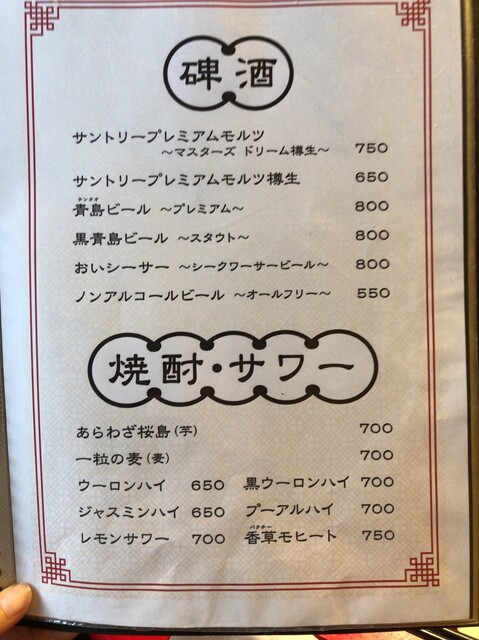 碑酒
サントリープレミアムモルツ
〜マスターズ ドリーム樽生〜 750
サントリープレミアムモルツ樽生 650
チンタオ
青島ビール 〜プレミアム〜 800
黒青島ビール 〜スタウト〜 800
おいシーサー 〜シークワーサービール〜 800
ノンアルコールビール 〜オールフリー〜 550
焼酎・サワー
あらわざ桜島(芋) 700
一粒の麦(麦) 700
ウーロンハイ 650 黒ウーロンハイ 700
ジャスミンハイ 650 プーアルハイ 700
パクチー
レモンサワー 700 香草モヒート 750